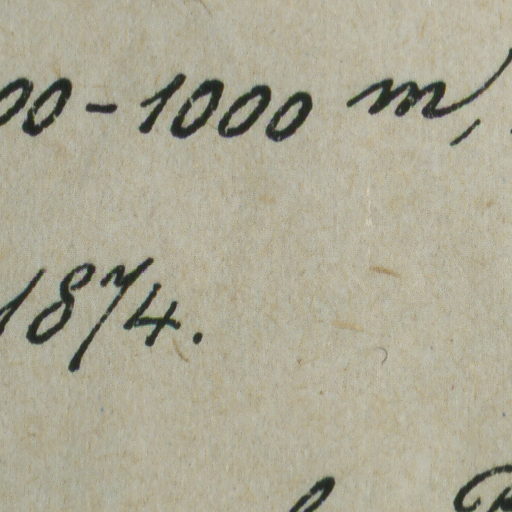 00-1000 m,
1874.